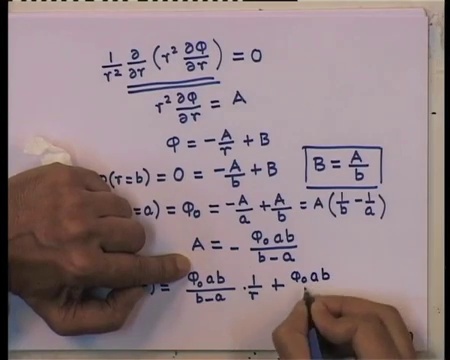 1/r² ∂/∂r (r² ∂φ/∂r) = 0
r² ∂φ/∂r = A
φ = -A/r + B
(r=b) = 0 = -A/b + B    B = A/b
=a) = φ₀ = -A/a + A/b = A(1/b - 1/a)
A = - φ₀ab/(b-a)
) = φ₀ab/(b-a) · 1/r + φ₀ab